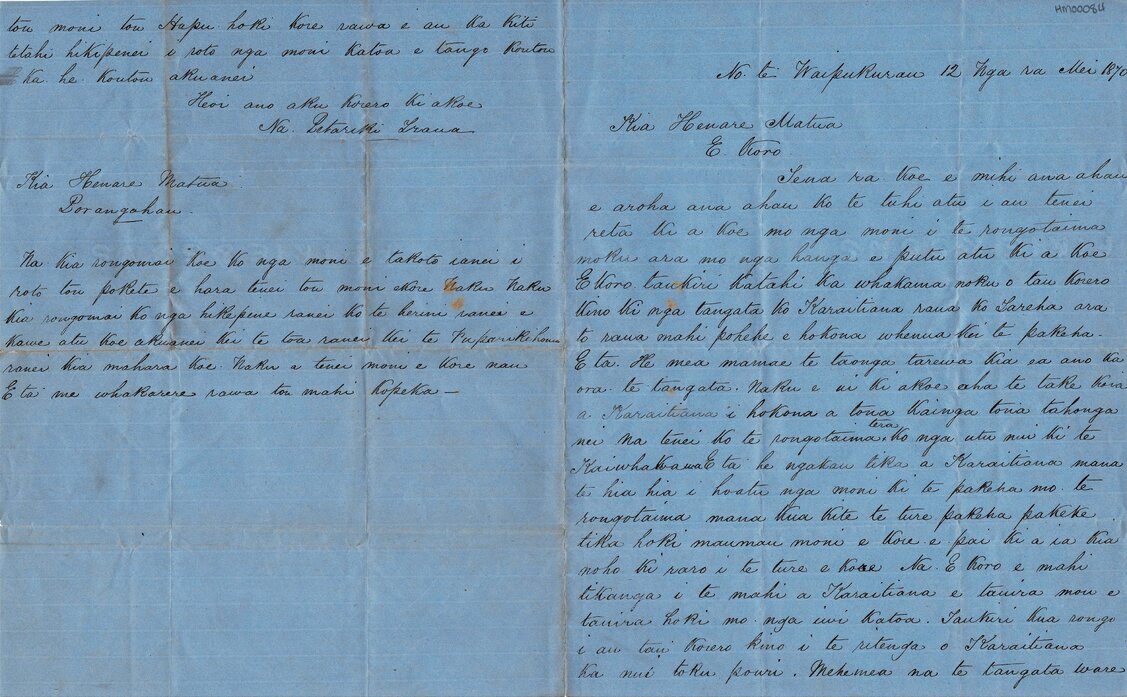 HM00084
No. te Waipukurau 12 Nga ra Mei 1870
Kia Henare Matua
E. Koro
Tena ra koe e mihi ana ahau
e aroha ana ahau ko te tuhi atu i au tenei
reta ki a koe mo nga moni i te rongotaima
moku ara mo nga hanga e putu atu ki a koe
E Koro. taukiri katahi ka whakama noku o tau korero
kino ki nga tangata ko Karaitiana raua ko Tareha ara
to raua mahi pohehe e hokona whenua kei te pakeha.
E ta. He mea mamae te taonga tarewa kia ea ano ka
ora. te tangata. Naku e ui ki akoe aha te take koia
a Karaitiana i hokona a tona kainga tona tahonga
nei na tenei ko te rongotaima. tera ko nga utu nui ki te
Kaiwhakawa E ta he ngakau tika a Karaitiana mana
te hia hia i hoatu nga moni ki te pakeha mo. te
rongotaima mana kua kite te ture pakeha pakeke
tika hoki maumau moni e kore e pai ki a ia kia
noho ki raro i te ture e kore Na E Koro e mahi
tikanga i te mahi a Karaitiana e tauira mou e
tauira hoki mo nga iwi katoa. Taukiri kua rongo
i au tau korero kino i te ritenga o Karaitiana
ka nui toku pouri. Mehemea na te tangata ware
tou moni tou Hapu hoki kore rawa e au ka kite
tetahi hikipenei i roto nga moni katoa e tango koutou
ka he koutou akuanei
Heoi ano aku korero ki akoe
Na. Petariki
Kia Henare Matua.
Porangahau.
Na kia rongomai koe ko nga moni e takoto ianei i
roto tou pokete e hara tenei tou moni ekore Naku Naku
kia rongomai ko nga hikepene ranei ko te herini ranei e
hawe atu koe akuanei kei te toa ranei kei te
ranei kia mahara koe Naku a tenei moni e kore nau
E ta me whakarere rawa tou mahi kopeka —